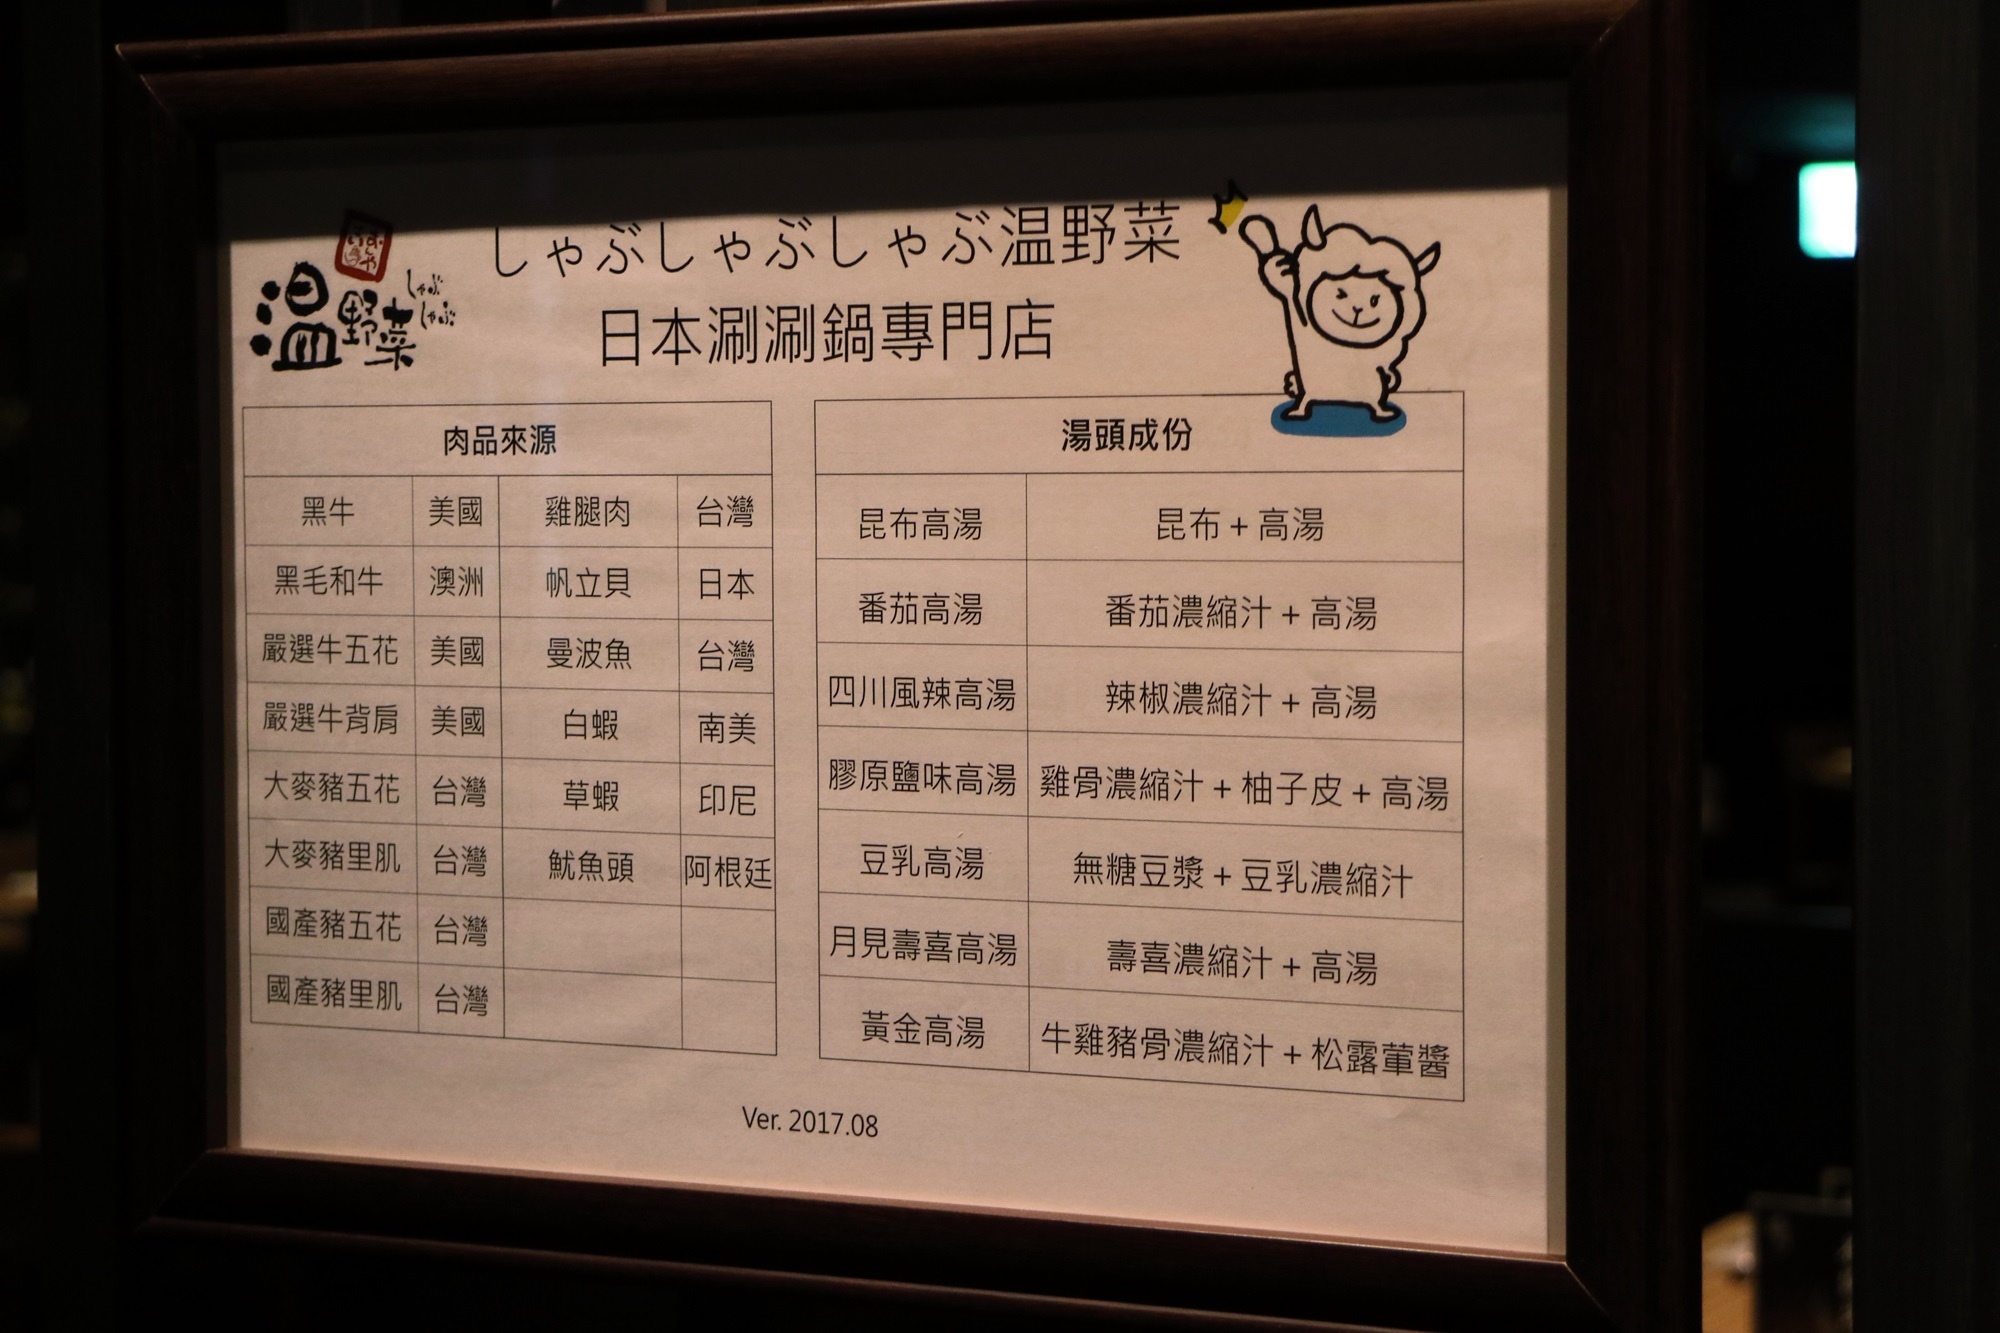 温野菜
しゃぶ
しゃぶ
しゃぶしゃぶしゃぶ温野菜
日本涮涮鍋專門店
肉品來源
黑牛 美國 雞腿肉 台灣
黑毛和牛 澳洲 帆立貝 日本
嚴選牛五花 美國 曼波魚 台灣
嚴選牛背肩 美國 白蝦 南美
大麥豬五花 台灣 草蝦 印尼
大麥豬里肌 台灣 魷魚頭 阿根廷
國產豬五花 台灣
國產豬里肌 台灣
湯頭成份
昆布高湯 昆布 + 高湯
番茄高湯 番茄濃縮汁 + 高湯
四川風辣高湯 辣椒濃縮汁 + 高湯
膠原鹽味高湯 雞骨濃縮汁 + 柚子皮 + 高湯
豆乳高湯 無糖豆漿 + 豆乳濃縮汁
月見壽喜高湯 壽喜濃縮汁 + 高湯
黃金高湯 牛雞豬骨濃縮汁 + 松露葷醬
Ver. 2017.08